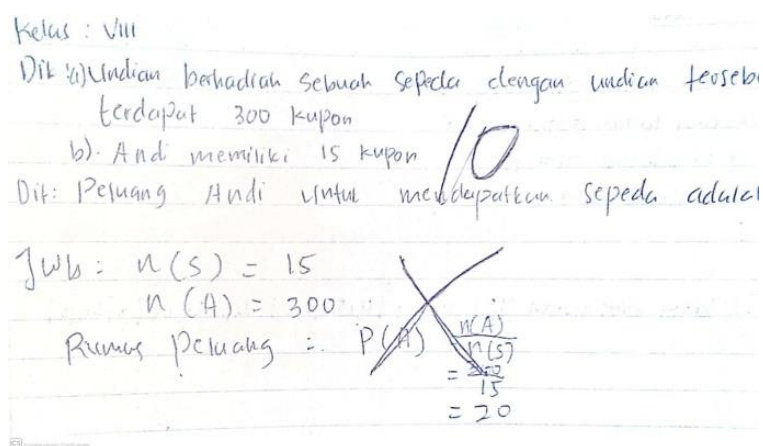 Kelas : VIII
Dik : a) Undian berhadiah sebuah sepeda dengan undian terseb
terdapat 300 kupon
b). Andi memiliki 15 kupon
10
Dit: Peluang Andi untuk mendapatkan sepeda adala
Jwb : n(S) = 15
n(A) = 300
Rumus peluang : P(A) = n(A)/n(S)
= 300/15
= 20